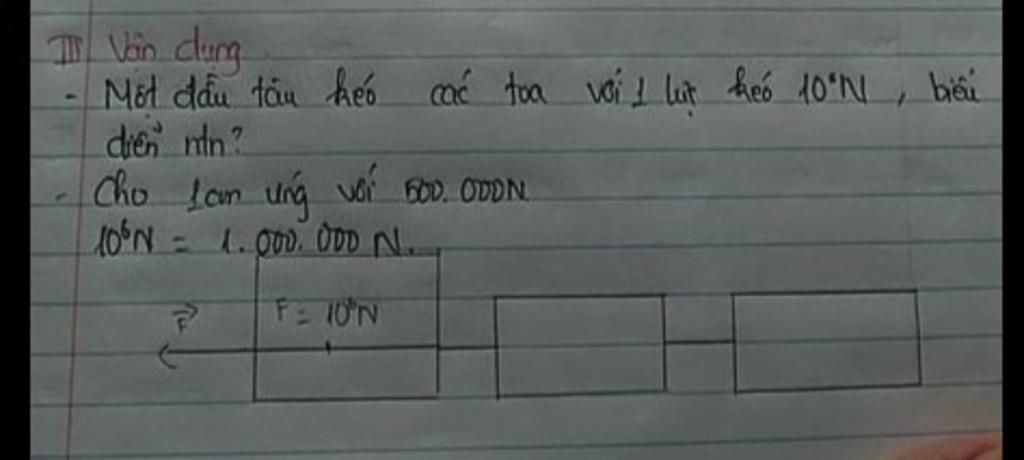 III Vận dụng
- Một đầu tàu kéo các toa với 1 lực kéo 10⁶N, biểu
diễn ntn?
- Cho 1cm ứng với 500.000N
10⁶N = 1.000.000 N.
F⃗ F = 10⁶N